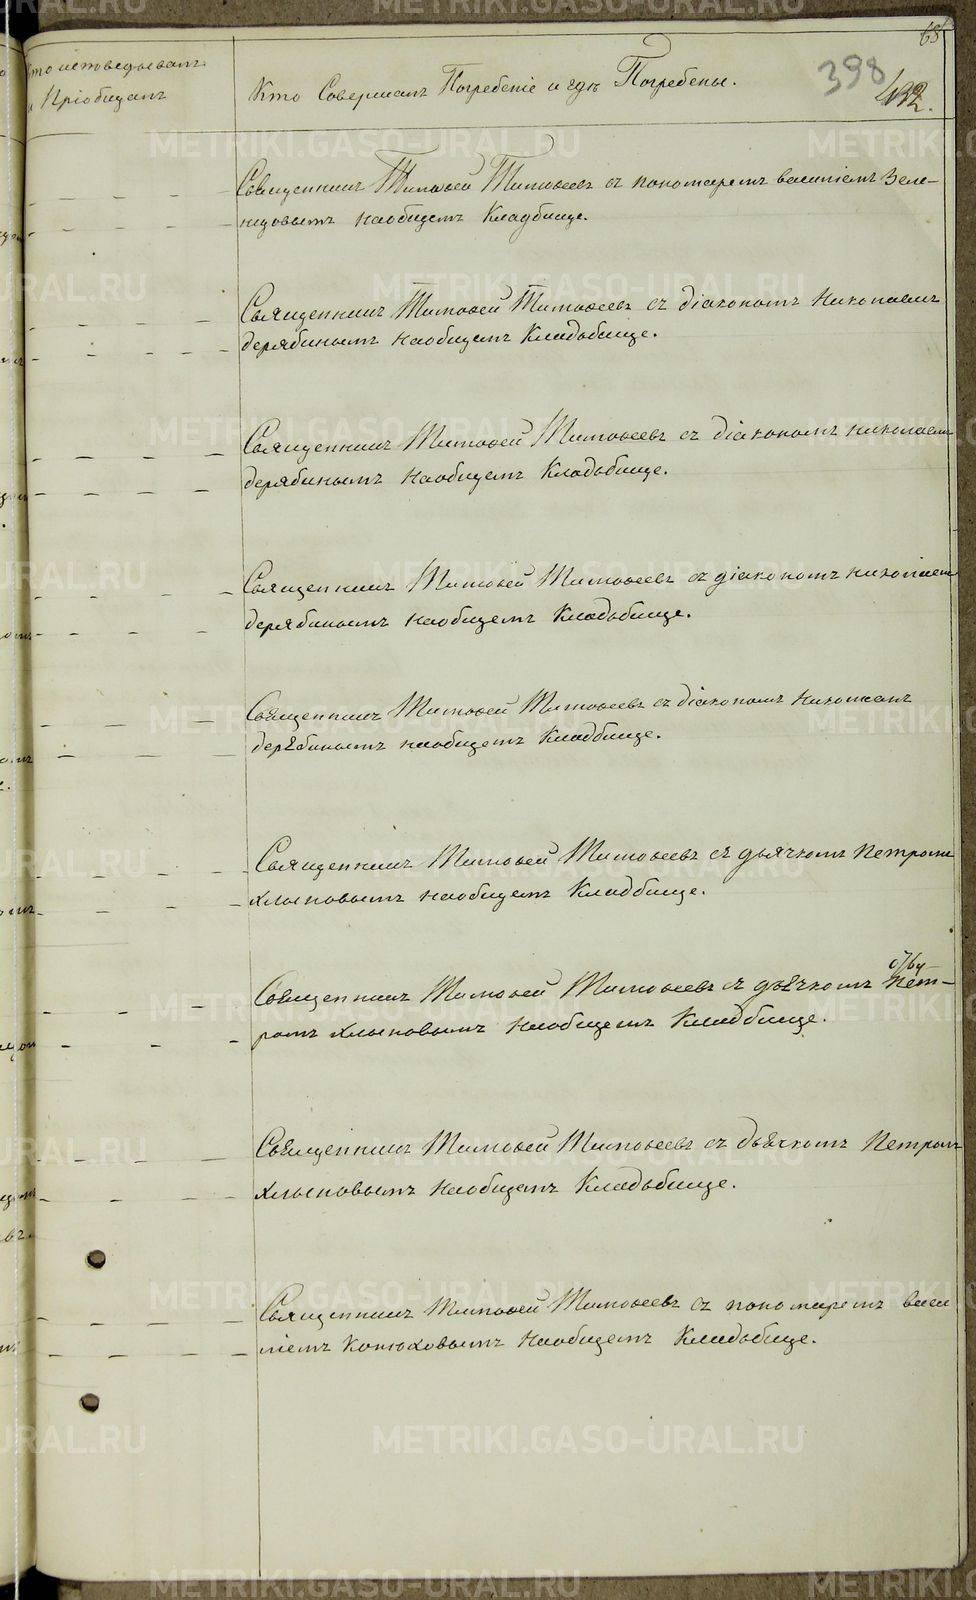 68
398
432.
Кто исповедывалъ
и Пріобщалъ
Кто Совершалъ Погребеніе и гдѣ Погребены.
Священникъ Тимоѳей Тимоѳеевъ съ пономаремъ василіемъ Зеле-
нцовымъ наобщемъ Кладбище.
Священникъ Тимоѳей Тимоѳеевъ съ діакономъ Николаемъ
дерябинымъ наобщемъ Кладьбище.
Священникъ Тимоѳей Тимоѳеевъ съ діакономъ николаемъ
дерябинымъ наобщемъ Кладьбище.
Священникъ Тимоѳей Тимоѳеевъ съ діакономъ николаем
дерябинымъ наобщемъ Кладьбище.
Священникъ Тимоѳей Тимоѳеевъ съ діакономъ Николаемъ
дерябинымъ наобщемъ Кладбище.
Священникъ Тимоѳей Тимоѳеевъ съ дьячкомъ Петромъ
хлыновымъ наобщемъ Кладбище.
Священникъ Тимоѳей Тимоѳеевъ съ дьячкомъ Пет-
ромъ хлыновымъ наобщемъ Кладбище.
Священникъ Тимоѳей Тимоѳеевъ съ дьячкомъ Петромъ
хлыновымъ наобщемъ Кладьбище.
Священникъ Тимоѳей Тимоѳеевъ съ пономаремъ васи
ліемъ Конюховымъ Наобщемъ Кладьбище.
METRIKI.GASO-URAL.RU